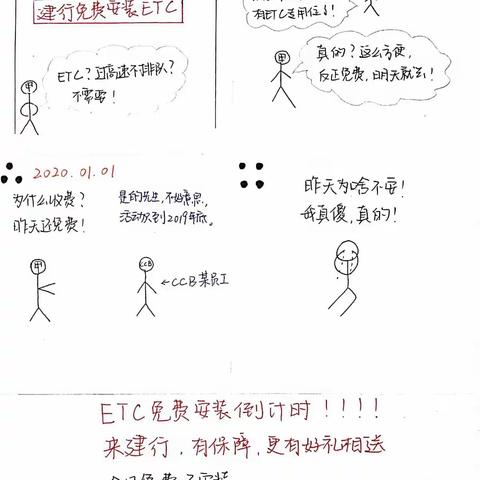 建行免费安装ETC
有ETC专用位了!
ETC?过高速不排队?
不需要!
甲
真的?这么方便,
反正免费,明天就去!
甲
2020.01.01
为什么收费?
昨天还免费!
是的先生,不好意思,
活动只到2019年底。
甲
CCB
←CCB某员工
昨天为啥不安!
我真傻,真的!
ETC免费安装倒计时!!!!
来建行,有保障,更有好礼相送